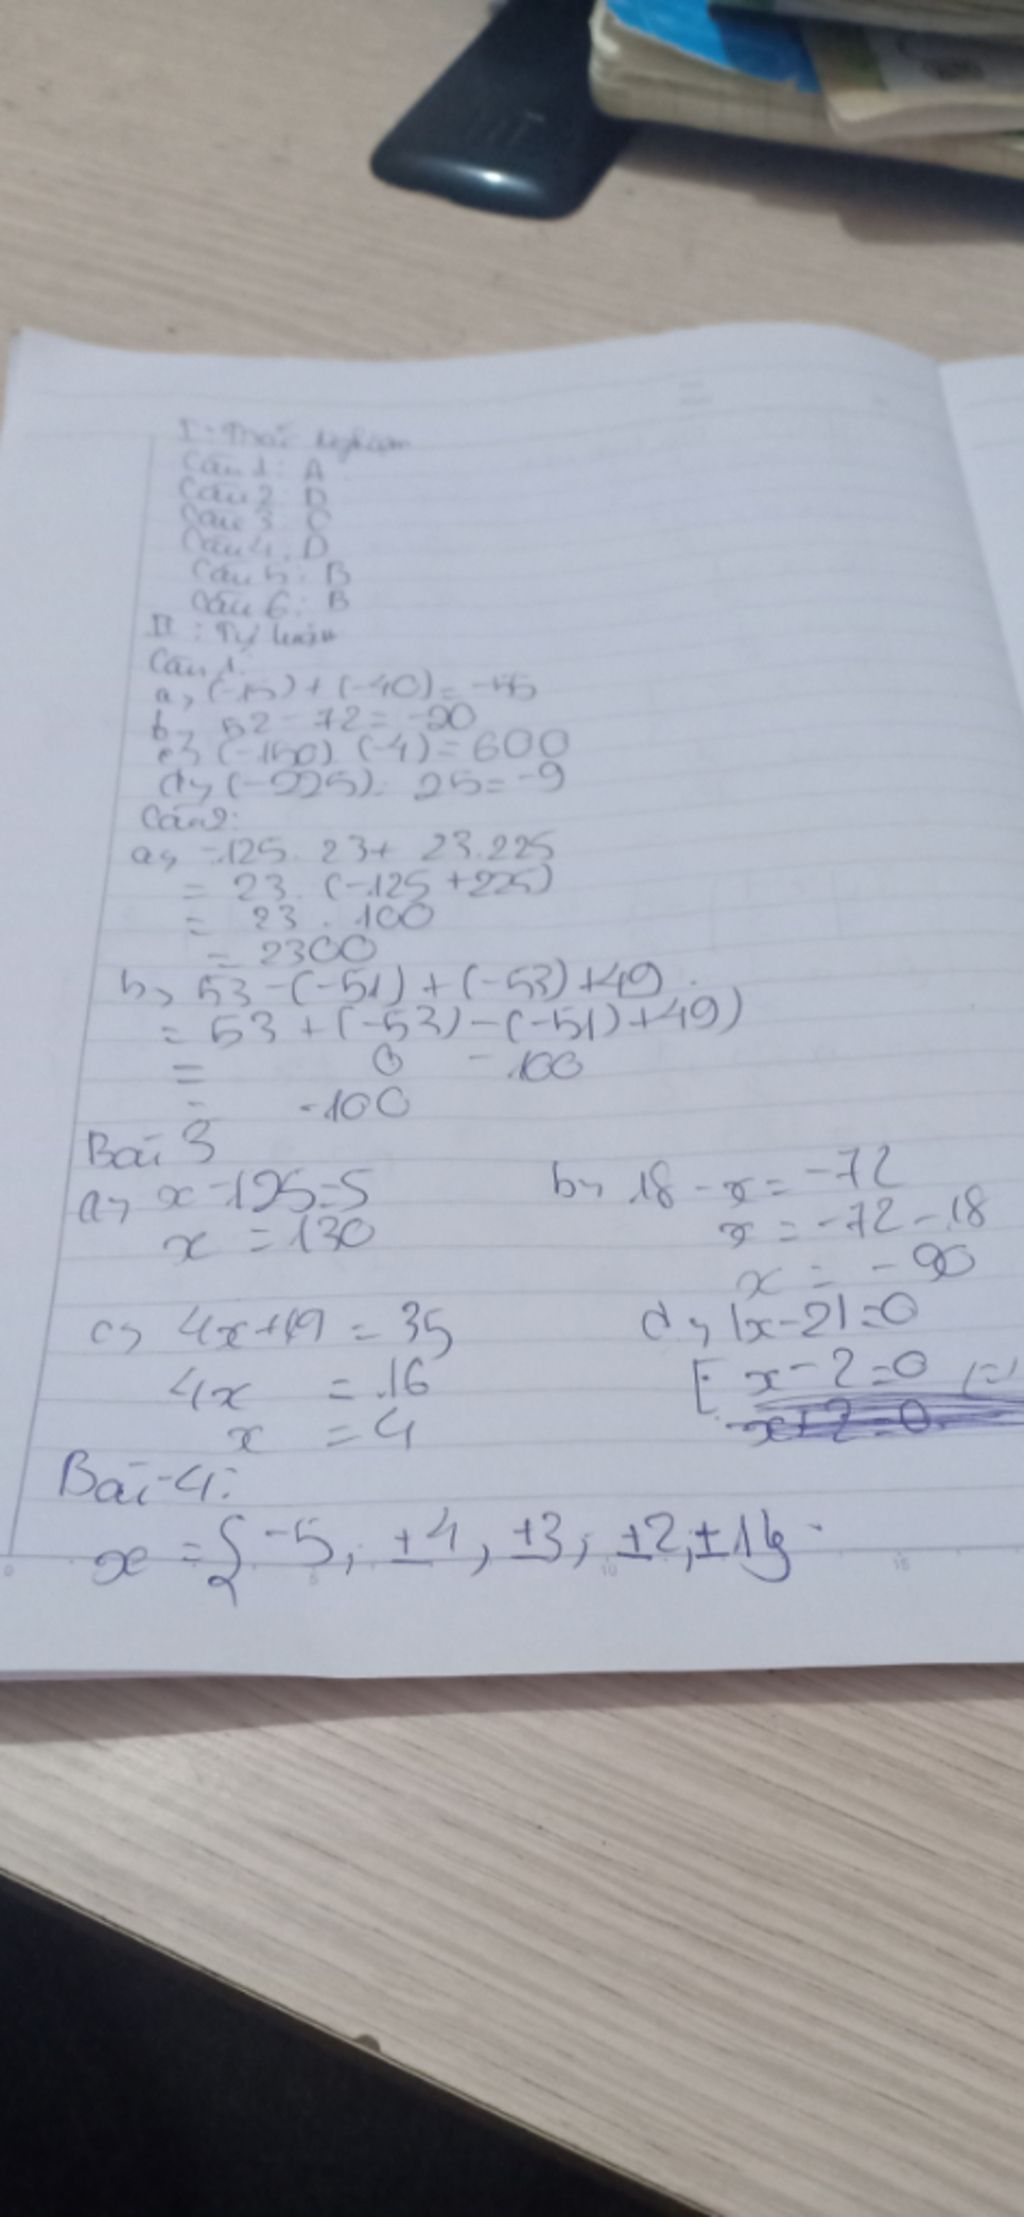 I. Trắc nghiệm
Câu 1: A
Câu 2: D
Câu 3: C
Câu 4: D
Câu 5: B
Câu 6: B
II: Tự luận
Câu 1:
a, (-15) + (-40) = -55
b, 52 - 72 = -20
c, (-150) . (-4) = 600
d, (-225) : 25 = -9
Câu 2:
a, -125. 23 + 23.225
= 23. (-125 + 225)
= 23 . 100
= 2300
b, 53 - (-51) + (-53) + 49
= 53 + (-53) - (-51) + 49)
= 0 - 100
= -100
Bài 3
a, x - 125 = 5
x = 130
b, 18 - x = -72
x = -72 - 18
x = -90
c, 4x + 19 = 35
4x = 16
x = 4
d, |x - 2| = 0
[ x - 2 = 0
x + 2 = 0
Bài 4:
x = { -5, ±4, ±3, ±2, ±1}